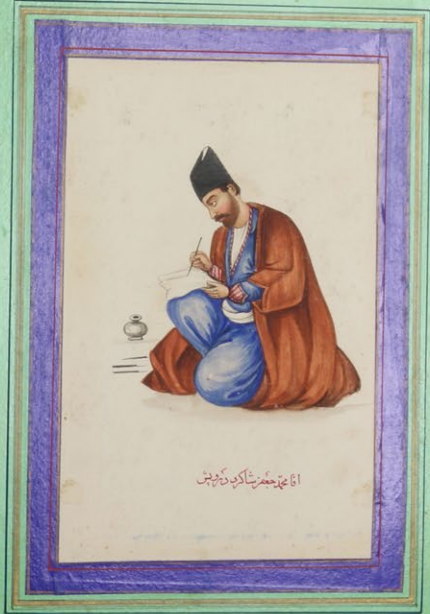 اقا محمد جعفر شاکرد درویش